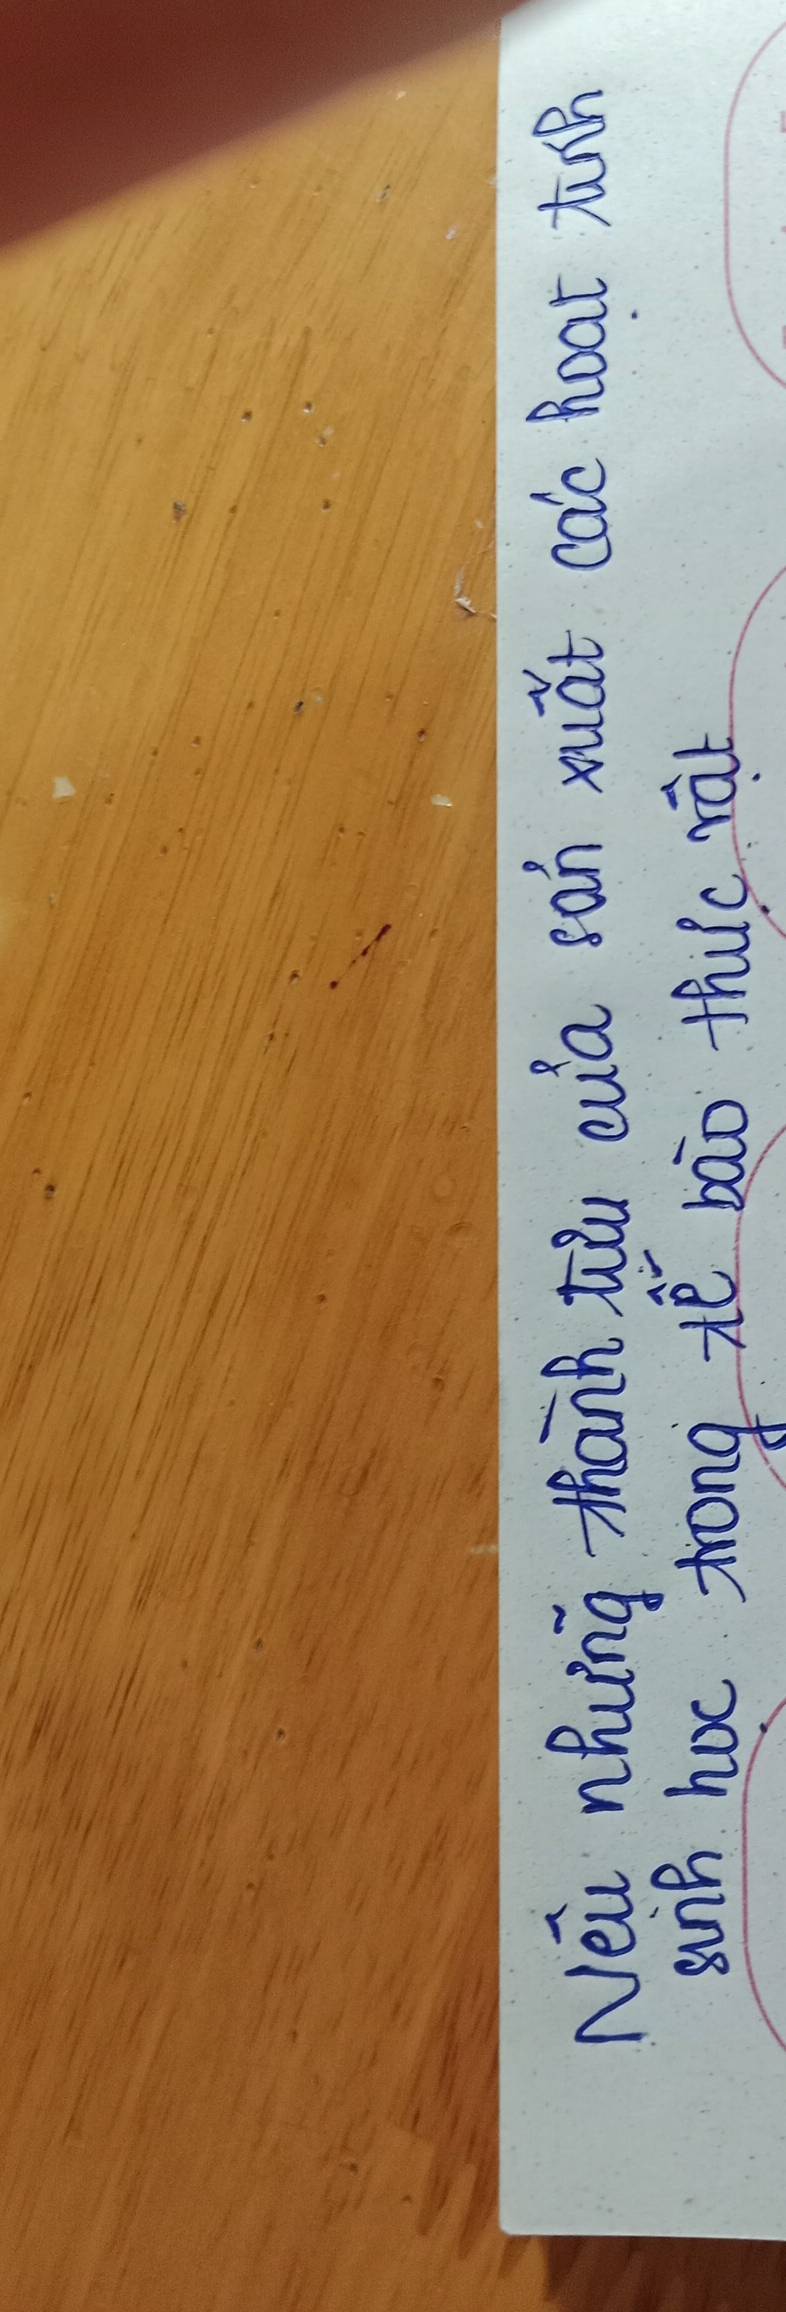 Nêu những thành tựu của sản xuất các hoạt tính
sinh học trong tế bào thực vật